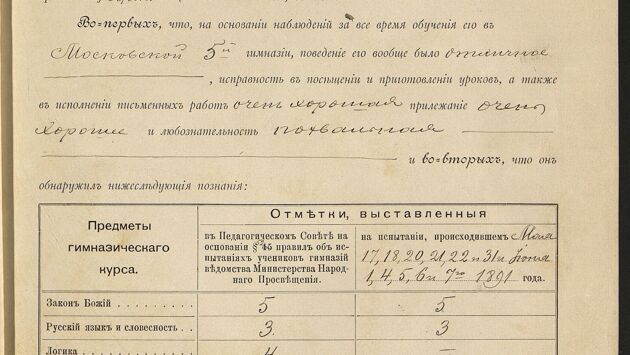 Во-первыхъ, что, на основаніи наблюденій за все время обученія его въ
Московской 5й гимназіи, поведеніе его вообще было отличное
, исправность въ посѣщеніи и приготовленіи уроковъ, а также
въ исполненіи письменныхъ работъ очень хорошая прилежаніе очень
хорошее и любознательность похвальная
и во-вторыхъ, что онъ
обнаружилъ нижеслѣдующія познанія:
Предметы
гимназическаго
курса.
Отмѣтки, выставленныя
въ Педагогическомъ Совѣтѣ на
основаніи § 45 правилъ объ ис-
пытаніяхъ учениковъ гимназій
вѣдомства Министерства Народ-
наго Просвѣщенія.
на испытаніи, происходившемъ Мая
17, 18, 20, 21, 22 и 31 и Іюня
1, 4, 5, 6 и 7го 1891 года.
Законъ Божій . . . . . . . . . 5 5
Русскій языкъ и словесность . . 3 3
Логика . . . . . . . . . 4 —